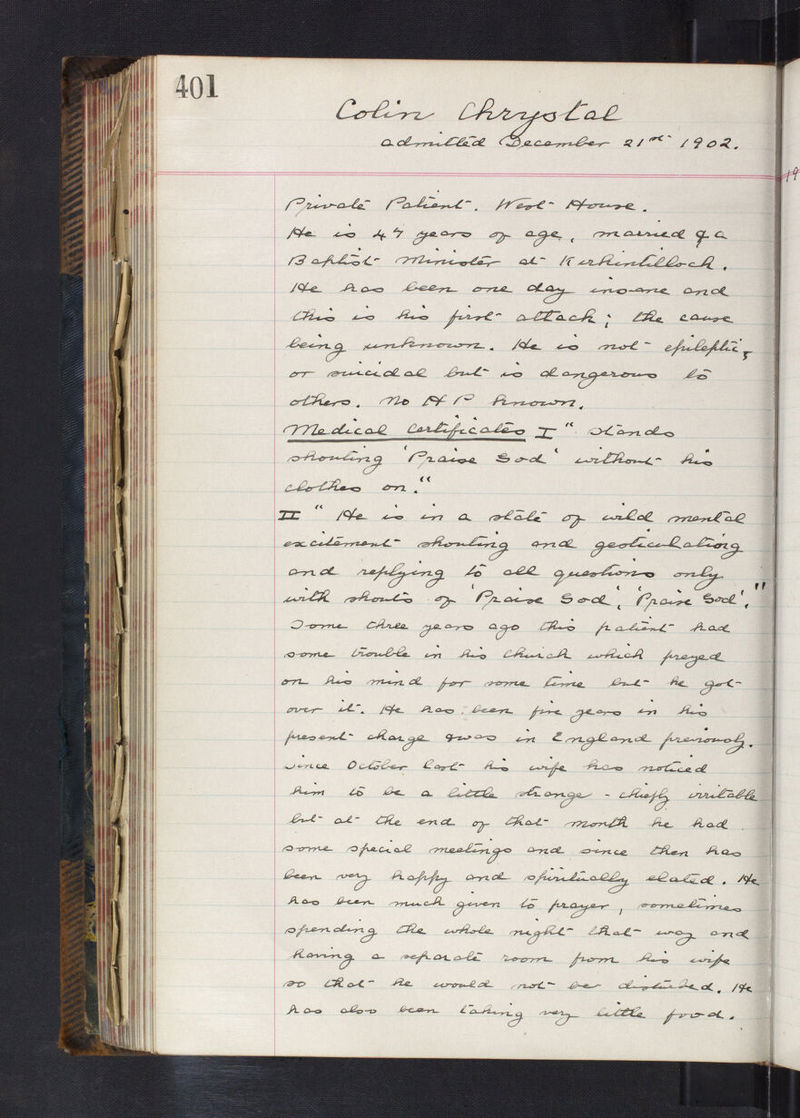 401
Colin Chrystal
admitted December 21st 1902.
Private Patient. West House.
He is 47 years of age, married & a
Baptist Minister at Kirkintilloch.
He has been one day insane and
this is his first attack; the cause
being unknown. He is not epileptic,
or suicidal but is dangerous to
others. No H P known.
Medical Certificates I "Stands
shouting 'Praise God' without his
clothes on."
II "He is in a state of wild mental
excitement shouting and gesticulating
and replying to all questions only
with shouts of 'Praise God', 'Praise God'."
Some three years ago this patient had
some trouble in his church which preyed
on his mind for some time but he got
over it. He has been five years in his
present charge & was in England previously.
Since October last his wife has noticed
him to be a little strange - chiefly irritable
but at the end of that month he had
some special meetings and since then has
been very happy and spiritually elated. He
has been much given to prayer, sometimes
spending the whole night that way and
having a separate room from his wife
so that he would not be disturbed. He
has also been taking very little food.
19